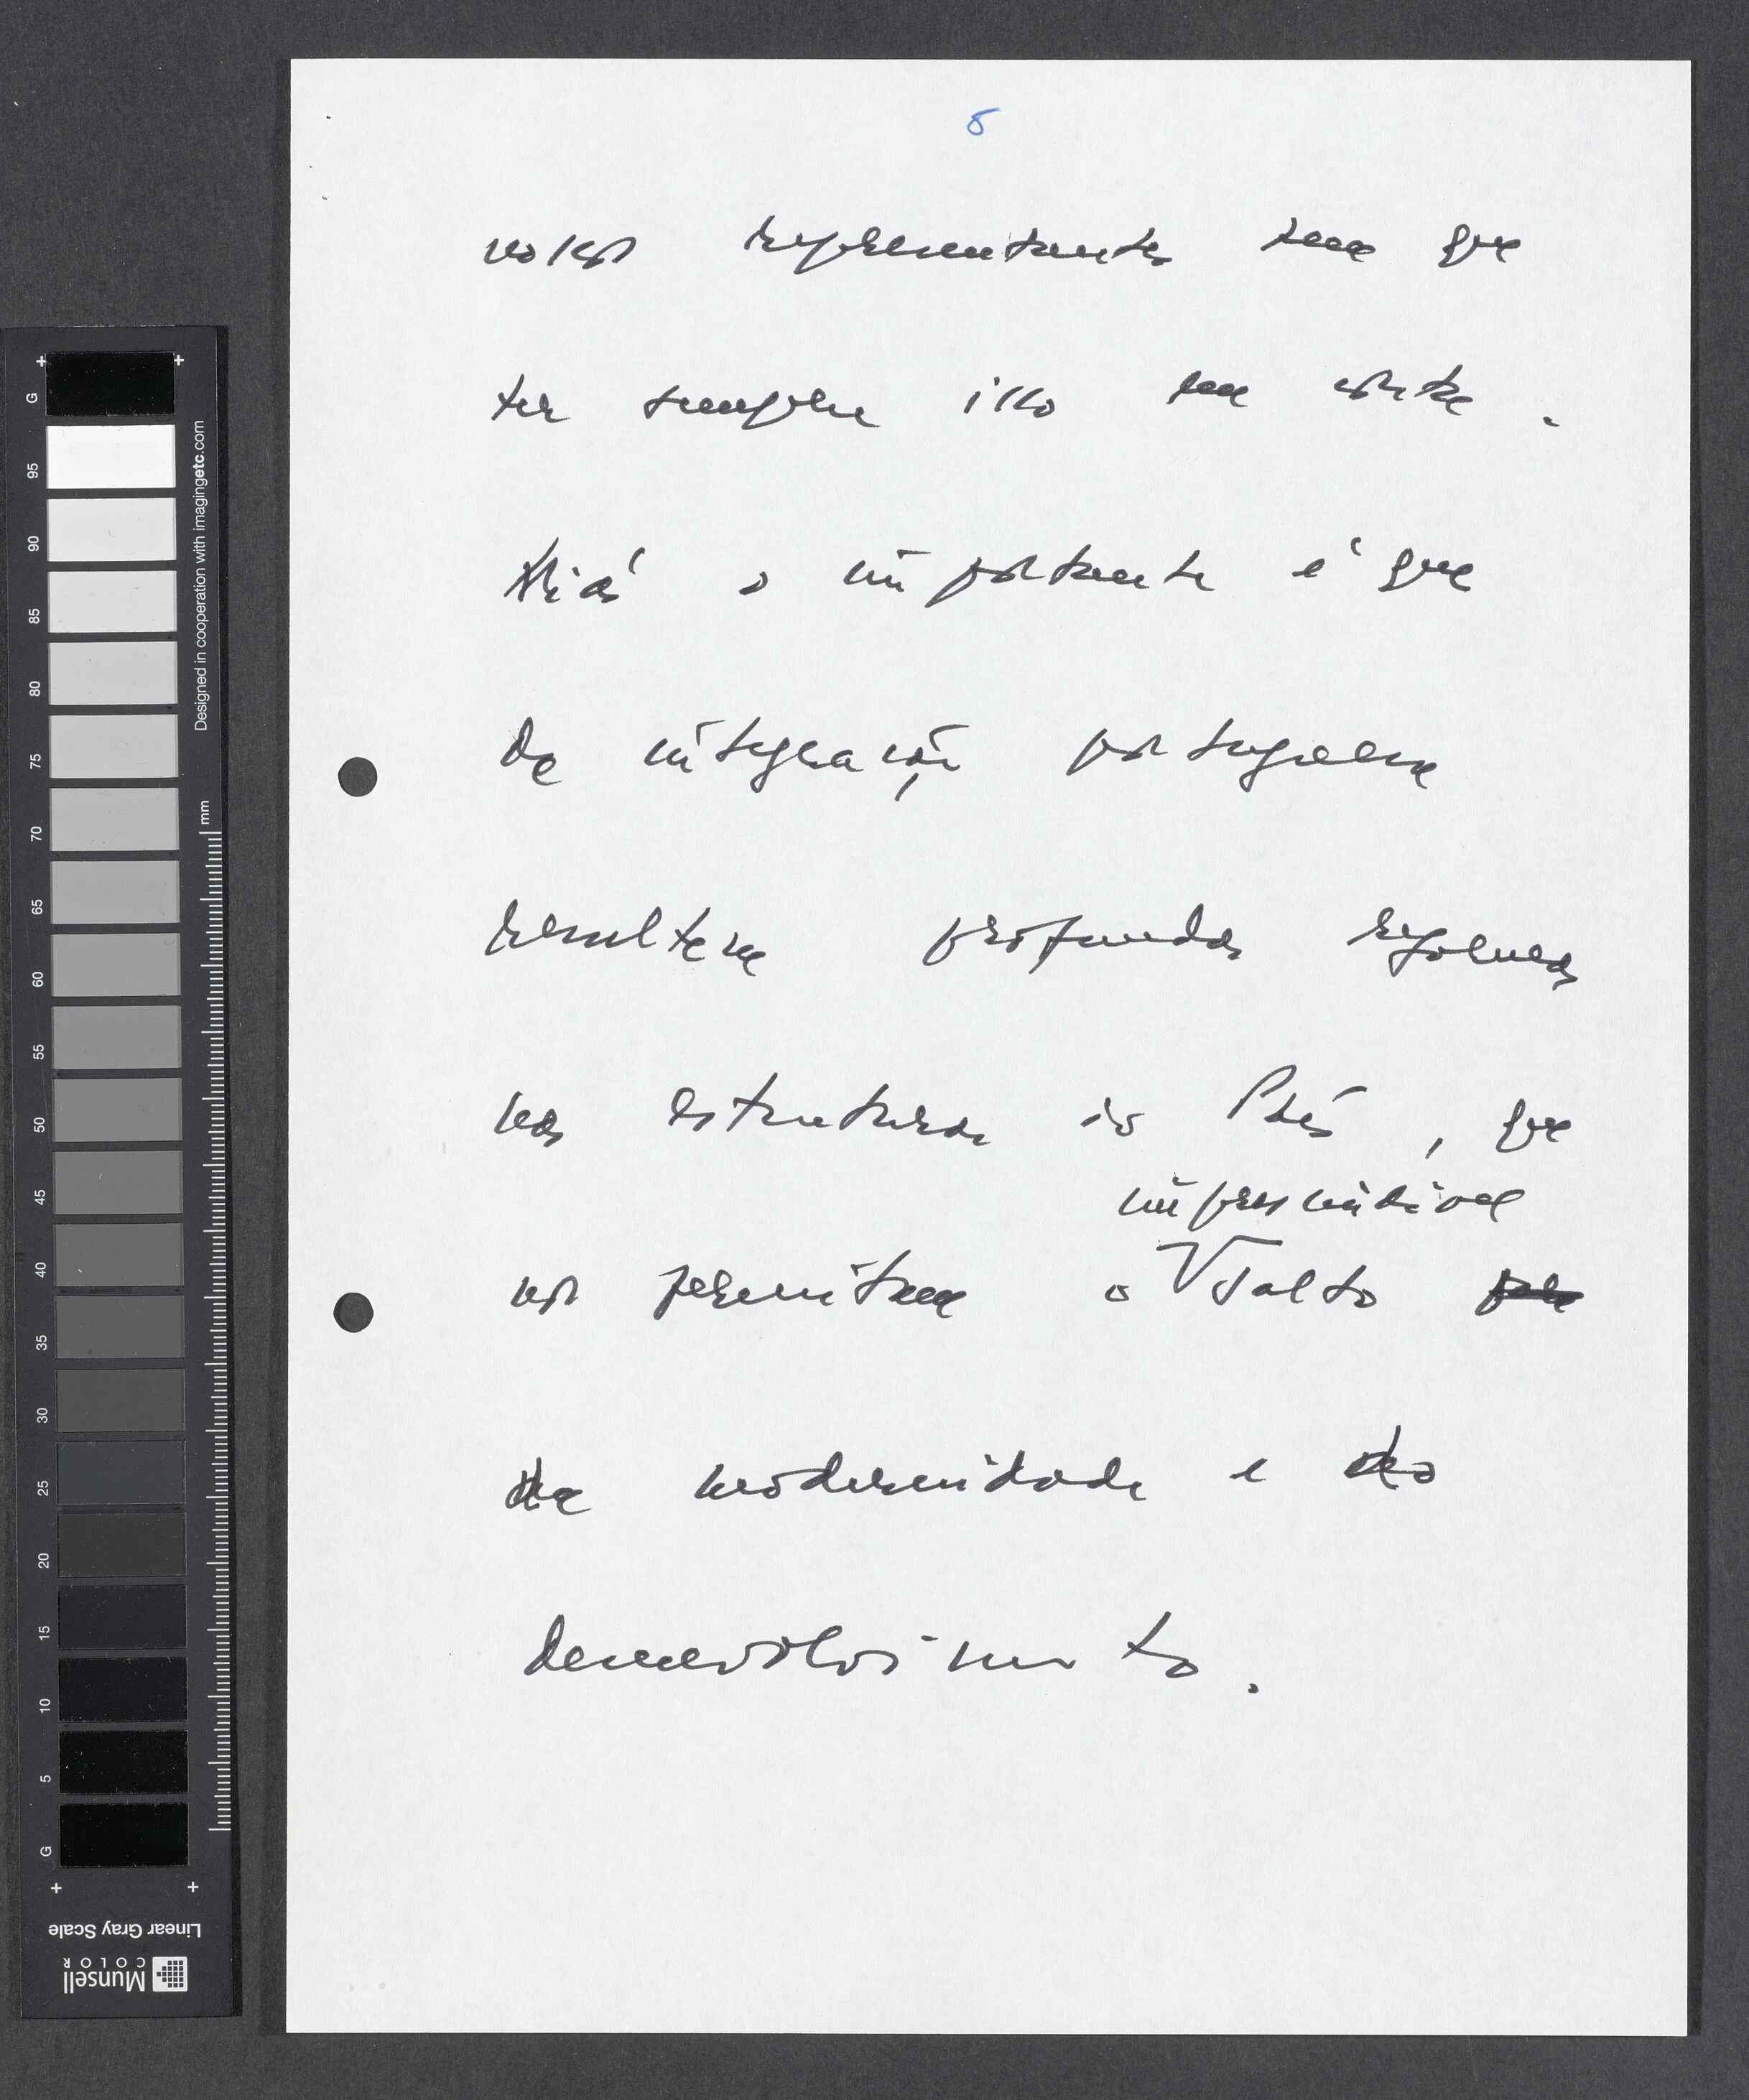 8
nossos representantes tem que
ter sempre isso em conta.
Mas o importante é que
da integração portuguesa
resultem profundas reformas
nas estruturas do País, que
imprescindível
nos permitam o salto
da modernidade e do
desenvolvimento.
G
95
90
85
80
75
70
65
60
55
50
45
40
35
30
25
20
15
10
5
G
Designed in cooperation with imagingetc.com
mm
Linear Gray Scale
Munsell
COLOR